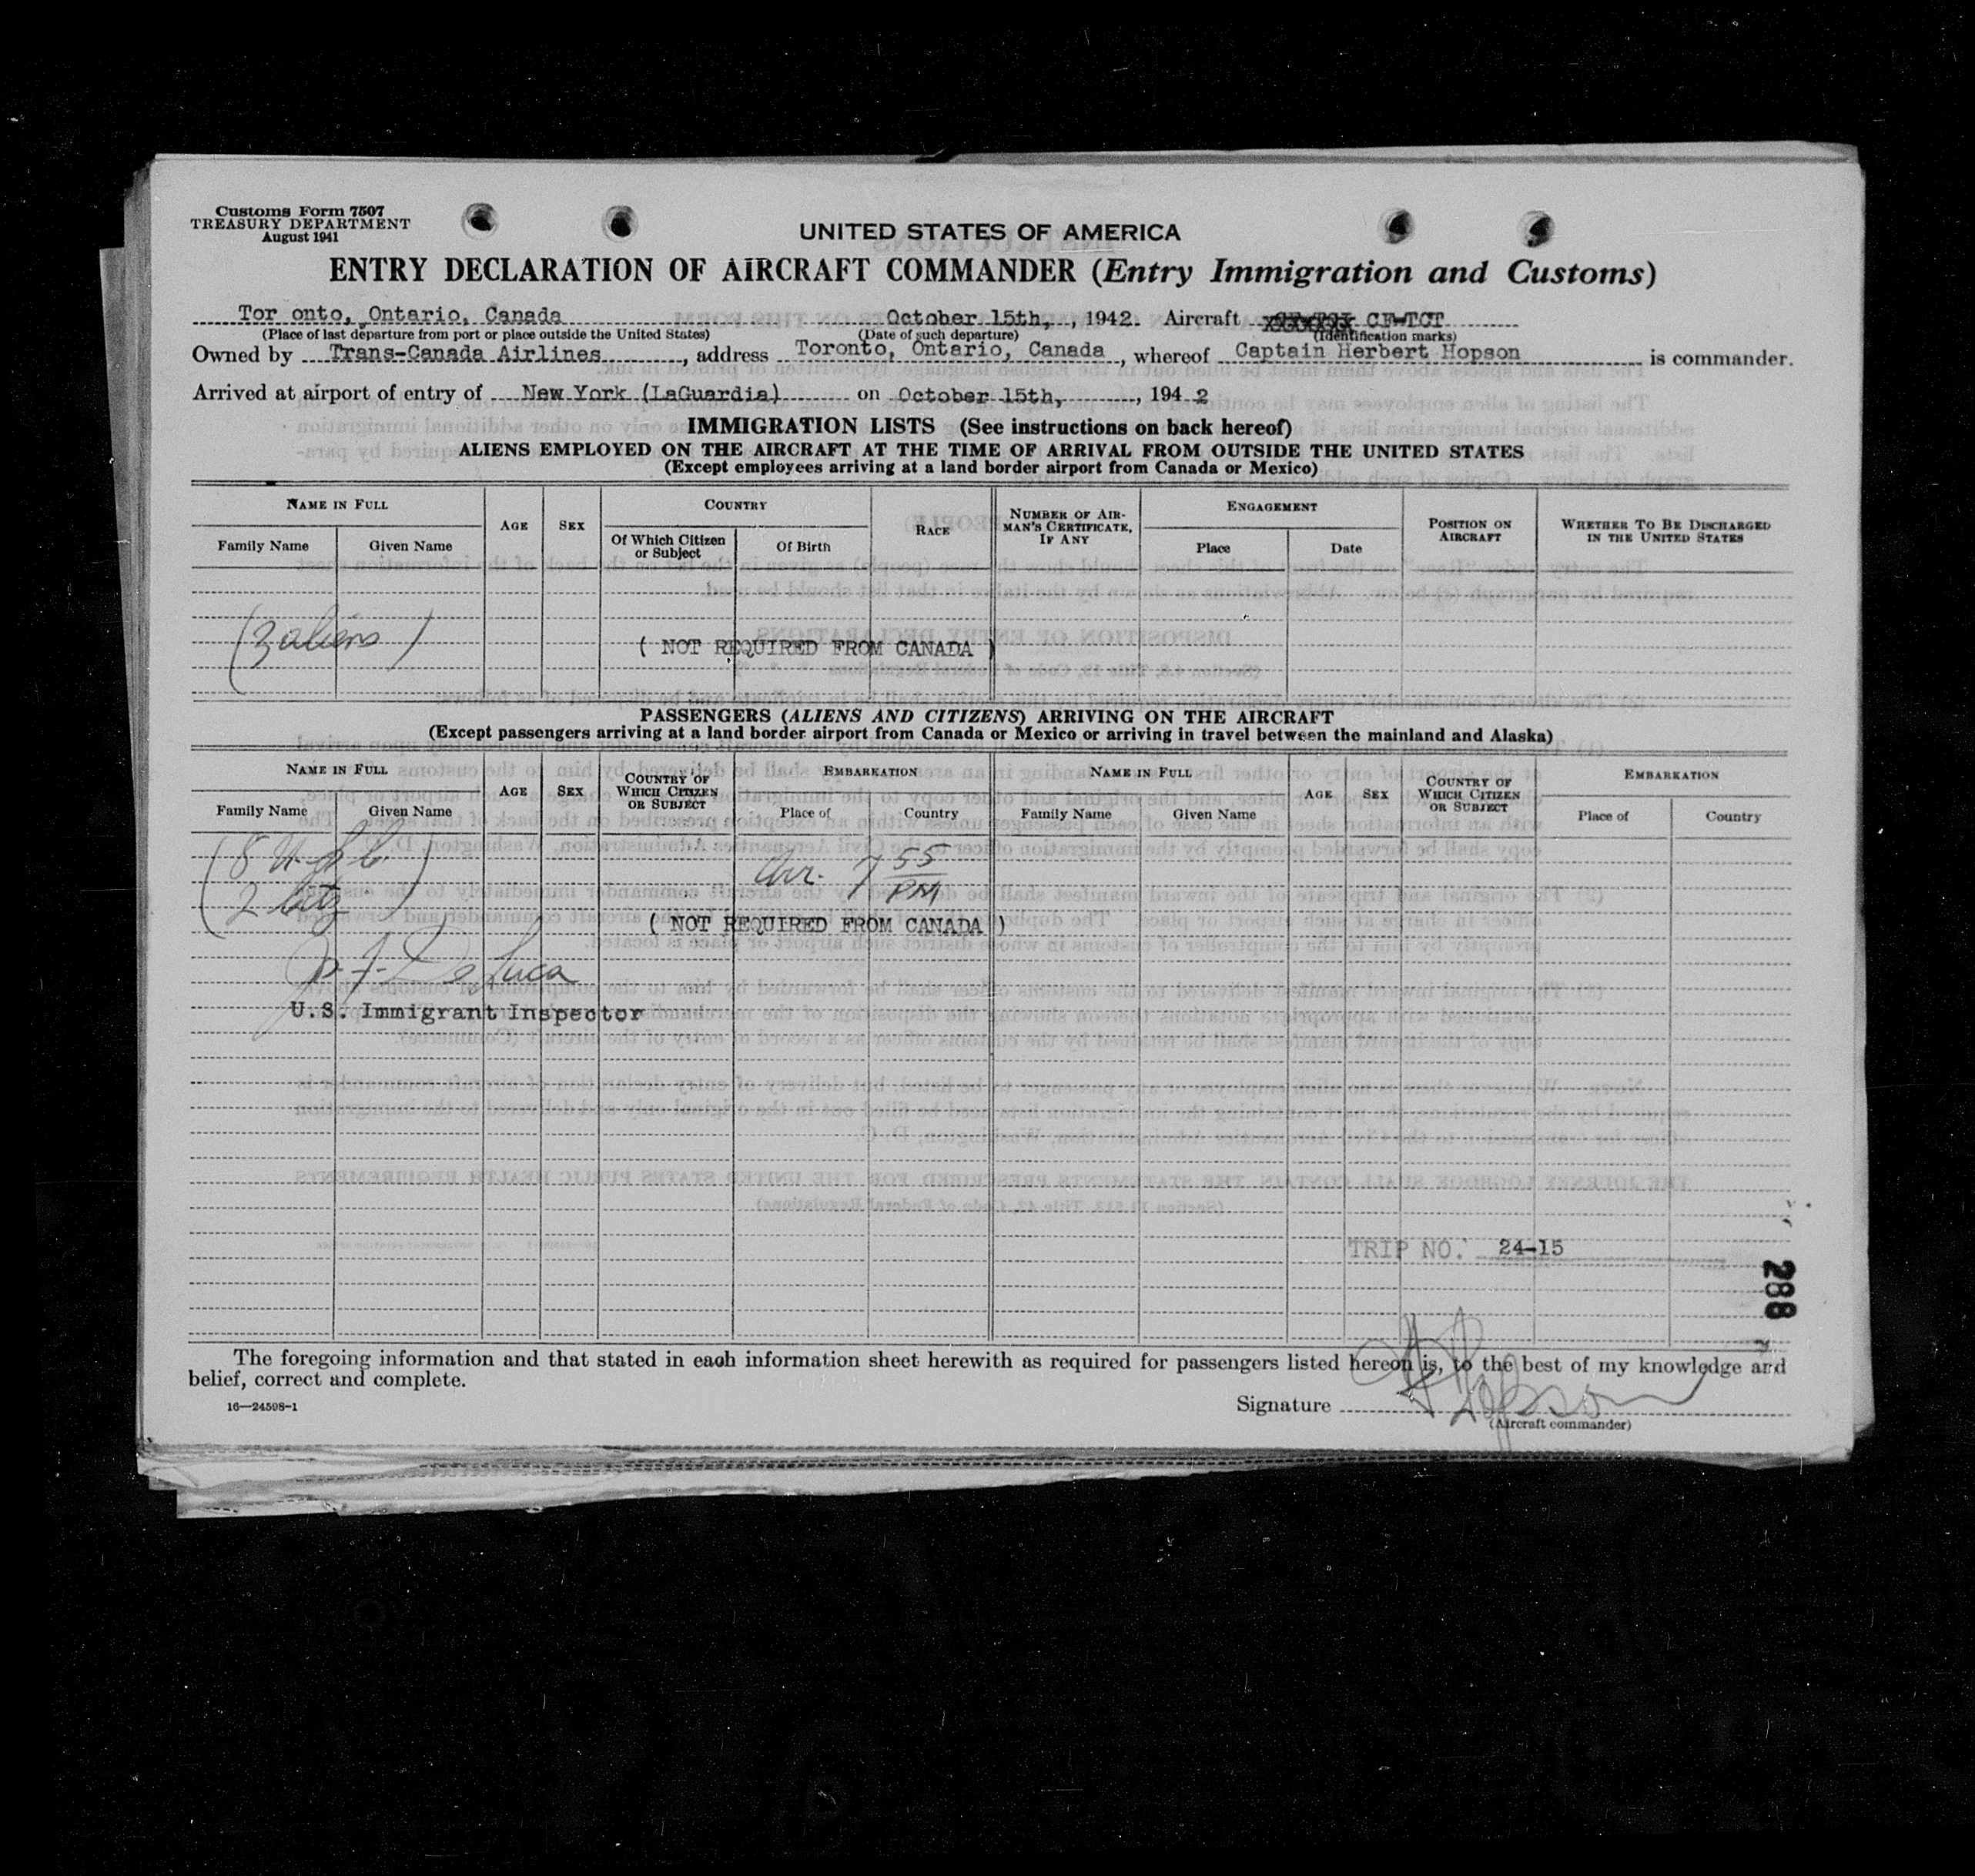 Customs Form 7507
TREASURY DEPARTMENT
August 1941
UNITED STATES OF AMERICA
ENTRY DECLARATION OF AIRCRAFT COMMANDER (Entry Immigration and Customs)
Tor onto, Ontario, Canada October 15th, , 1942. Aircraft CF-TCT
(Place of last departure from port or place outside the United States) (Date of such departure) (Identification marks)
Owned by Trans-Canada Airlines , address Toronto, Ontario, Canada , whereof Captain Herbert Hopson is commander.
Arrived at airport of entry of New York (LaGuardia) on October 15th, , 194 2
IMMIGRATION LISTS (See instructions on back hereof)
ALIENS EMPLOYED ON THE AIRCRAFT AT THE TIME OF ARRIVAL FROM OUTSIDE THE UNITED STATES
(Except employees arriving at a land border airport from Canada or Mexico)
NAME IN FULL AGE SEX COUNTRY RACE NUMBER OF AIRMAN'S CERTIFICATE, IF ANY ENGAGEMENT POSITION ON AIRCRAFT WHETHER TO BE DISCHARGED IN THE UNITED STATES
Family Name Given Name Of Which Citizen or Subject Of Birth Place Date
(3 aliens) ( NOT REQUIRED FROM CANADA )
PASSENGERS (ALIENS AND CITIZENS) ARRIVING ON THE AIRCRAFT
(Except passengers arriving at a land border airport from Canada or Mexico or arriving in travel between the mainland and Alaska)
NAME IN FULL AGE SEX COUNTRY OF WHICH CITIZEN OR SUBJECT EMBARKATION NAME IN FULL AGE SEX COUNTRY OF WHICH CITIZEN OR SUBJECT EMBARKATION
Family Name Given Name Place of Country Family Name Given Name Place of Country
Arr. 7 55 PM
( NOT REQUIRED FROM CANADA )
De Luca
U.S. Immigrant Inspector
TRIP NO. 24-15
288
The foregoing information and that stated in each information sheet herewith as required for passengers listed hereon is, to the best of my knowledge and
belief, correct and complete.
16—24598-1
Signature H Hopson
(Aircraft commander)